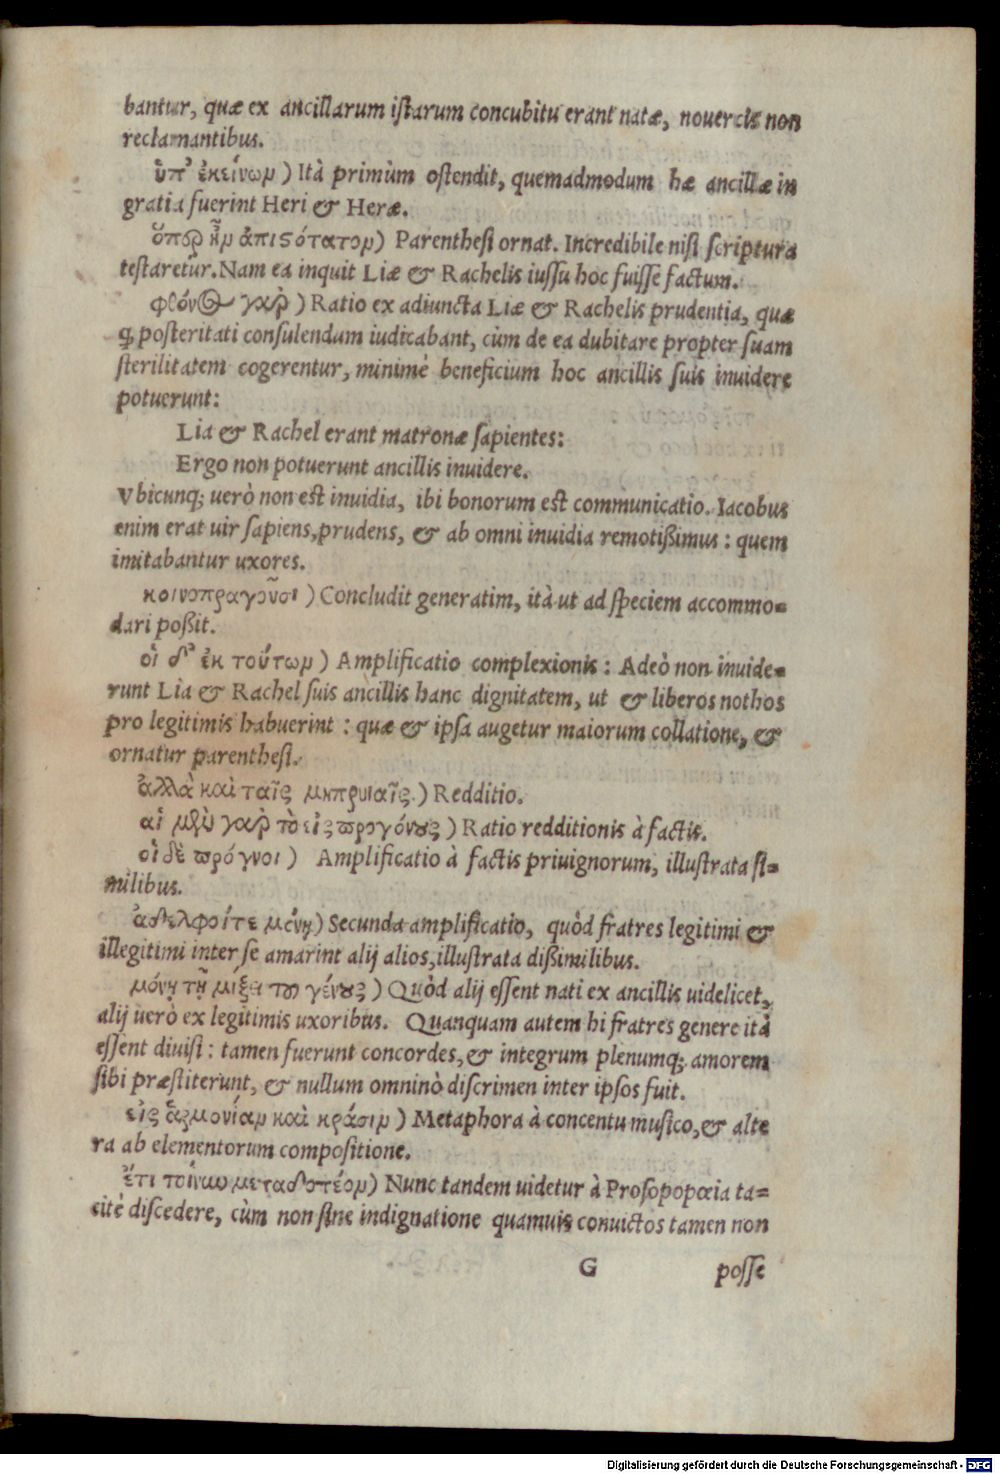 bantur, quæ ex ancillarum istarum concubitu erant natæ, nouercis non
reclamantibus.
ὑπ' ἐκείνων ) Ità primùm ostendit, quemadmodum hæ ancillæ in
gratia fuerint Heri & Heræ.
ὅπερ ἦν ἀπιστότατον) Parenthesi ornat. Incredibile nisi scriptura
testaretur. Nam ea inquit Liæ & Rachelis iussu hoc fuisse factum.
φθόνος γὰρ ) Ratio ex adiuncta Liæ & Rachelis prudentia, quæ
q; posteritati consulendum iudicabant, cùm de ea dubitare propter suam
sterilitatem cogerentur, minimè beneficium hoc ancillis suis inuidere
potuerunt:
Lia & Rachel erant matronæ sapientes:
Ergo non potuerunt ancillis inuidere.
Vbicunq; uerò non est inuidia, ibi bonorum est communicatio. Iacobus
enim erat uir sapiens, prudens, & ab omni inuidia remotißimus: quem
imitabantur uxores.
κοινοπραγοῦσι ) Concludit generatim, ità ut ad speciem accommo=
dari poßit.
οἱ δ' ἐκ τούτων ) Amplificatio complexionis: Adeò non inuide=
runt Lia & Rachel suis ancillis hanc dignitatem, ut & liberos nothos
pro legitimis habuerint: quæ & ipsa augetur maiorum collatione, &
ornatur parenthesi.
ἀλλὰ καὶ ταῖς μητρυιαῖς.) Redditio.
αἱ μὲν γὰρ τὸ εἰς προγόνους ) Ratio redditionis à factis.
οἱ δὲ πρόγνοι ) Amplificatio à factis priuignorum, illustrata si=
milibus.
ἀδελφοί τε μόνῃ) Secunda amplificatio, quòd fratres legitimi &
illegitimi inter se amarint alij alios, illustrata dißimilibus.
μόνῃ τῇ μίξει τοῦ γένους ) Quòd alij essent nati ex ancillis uidelicet,
alij uerò ex legitimis uxoribus. Quanquam autem hi fratres genere ità
essent diuisi: tamen fuerunt concordes, & integrum plenumq; amorem
sibi præstiterunt, & nullum omninò discrimen inter ipsos fuit.
εἰς ἁρμονίαν καὶ κρᾶσιν ) Metaphora à concentu musico, & alte
ra ab elementorum compositione.
ἔτι τοίνυν μεταδοτέον) Nunc tandem uidetur à Prosopopœia ta=
citè discedere, cùm non sine indignatione quamuis conuictos tamen non
G posse
Digitalisierung gefördert durch die Deutsche Forschungsgemeinschaft - DFG